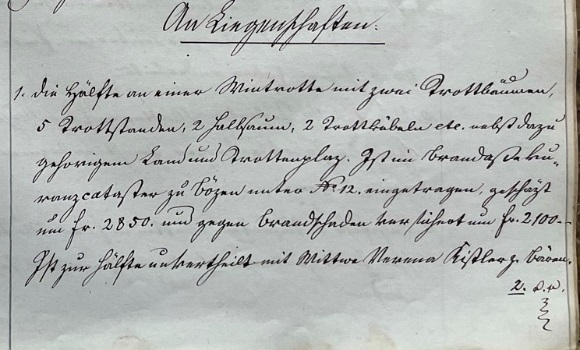 An Liegenschaften.
1. Die Hälfte an einer Wintrotte mit zwei Trottbäumen,
5 Trottstanden, 2 Halbsaum, 2 Trottkübeln etc. nebst dazu
gehörigem Land und Trottenplaz. Ist im Brandasseku-
ranzcataster zu Bözen unter No 12. eingetragen, geschäzt
um fr. 2850. und gegen Brandschaden versichert um fr. 2100.–
Ist zur Hälfte unvertheilt mit Wittwe Verena Kistler z. Bären.
2.